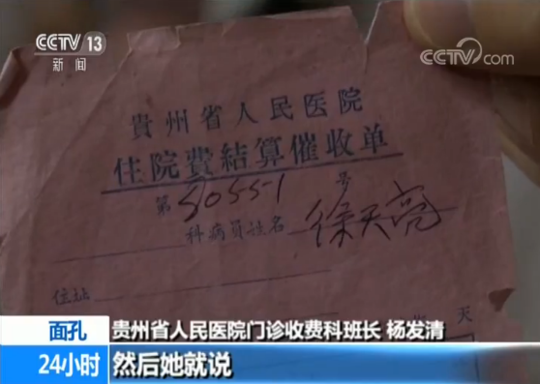 CCTV 13
新闻
CCTV.com
貴州省人民医院
住院費結算催收单
第5055-1号
科病員姓名 徐天亮
住址
天
面孔
贵州省人民医院门诊收费科班长 杨发清
24小时
然后她就说